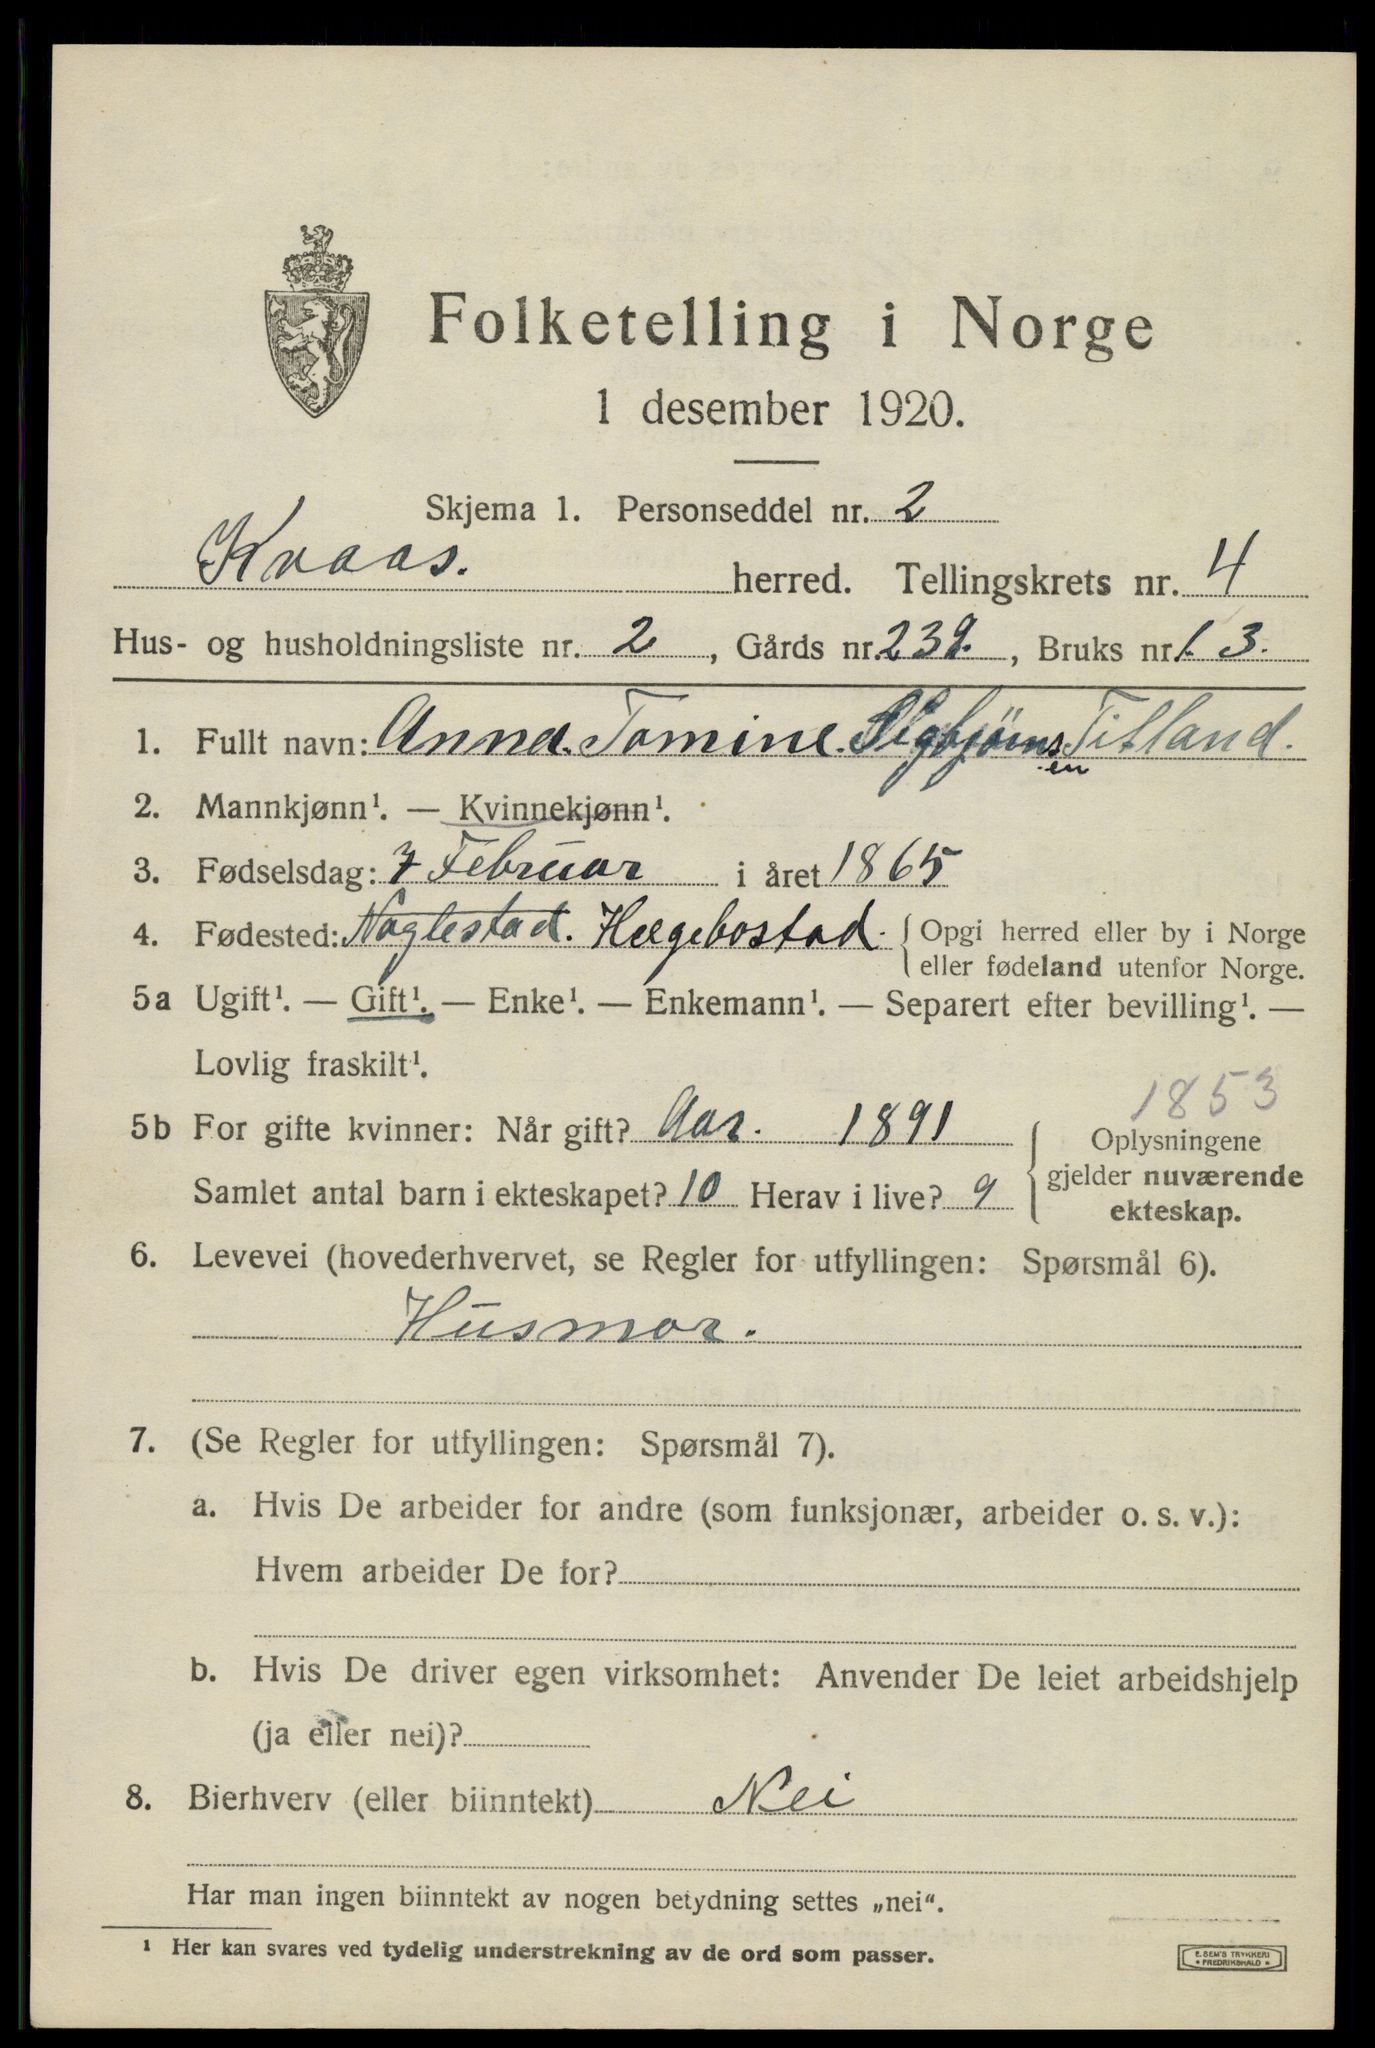 Folketelling i Norge
1 desember 1920.
Skjema 1. Personseddel nr. 2
Kvaas. herred. Tellingskrets nr. 4
Hus- og husholdningsliste nr. 2, Gårds nr. 239., Bruks nr. 1. 3.
1. Fullt navn: Anna. Tomine. Sigbjørnsen Titland.
2. Mannkjønn¹. — Kvinnekjønn¹.
3. Fødselsdag: 7 Februar i året 1865
4. Fødested: Naglestad. Hægebostad. Opgi herred eller by i Norge
eller fødeland utenfor Norge.
5a Ugift¹. — Gift¹. — Enke¹. — Enkemann¹. — Separert efter bevilling¹. —
Lovlig fraskilt¹.
1853
5b For gifte kvinner: Når gift? Aar. 1891 Oplysningene
gjelder nuværende
ekteskap.
Samlet antal barn i ekteskapet? 10 Herav i live? 9
6. Levevei (hovederhvervet, se Regler for utfyllingen: Spørsmål 6).
Husmor.
7. (Se Regler for utfyllingen: Spørsmål 7).
a. Hvis De arbeider for andre (som funksjonær, arbeider o. s. v.):
Hvem arbeider De for?
b. Hvis De driver egen virksomhet: Anvender De leiet arbeidshjelp
(ja eller nei)?
8. Bierhverv (eller biinntekt) Nei
Har man ingen biinntekt av nogen betydning settes „nei“.
¹ Her kan svares ved tydelig understrekning av de ord som passer.
E. SEM'S TRYKKERI
* FREDRIKSHALD *